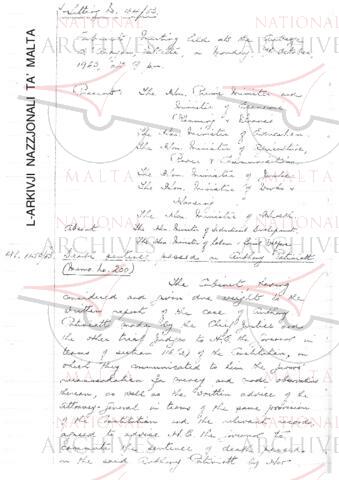 Sitting No. 44/63.
Cabinet Meeting held at the Auberge
on Monday, October
1963, at 5 p.m.
Present: The Hon. Prime Minister and
Minister of Economic
Planning & Finance
The Hon. Minister of Education
The Hon. Minister of Agriculture,
Power & Communications
The Hon. Minister of Justice
The Hon. Minister of Works &
Housing
The Hon. Minister of Health
Absent: The Hon. Minister of Industrial Development,
The Hon. Minister of Labour & Social Welfare
Death sentence passed on Anthony
(Memo. No. 200)
The Cabinet, having
considered and given due weight to the
written report of the case Anthony
made by the Chief Justice and
the other trial judges to H.E. the Governor in
terms of section of the Constitution, in
which they communicated to him the jurors'
recommendation for mercy and made observations
thereon, as well as the written advice of the
Attorney-General in terms of the same provision
of the Constitution and the relevant records,
agreed to advise H.E. the Governor to
commute the sentence of death passed
on the said Anthony by Her
L-ARKIVJI NAZZJONALI TA' MALTA
NATIONAL
ARCHIVES
MALTA